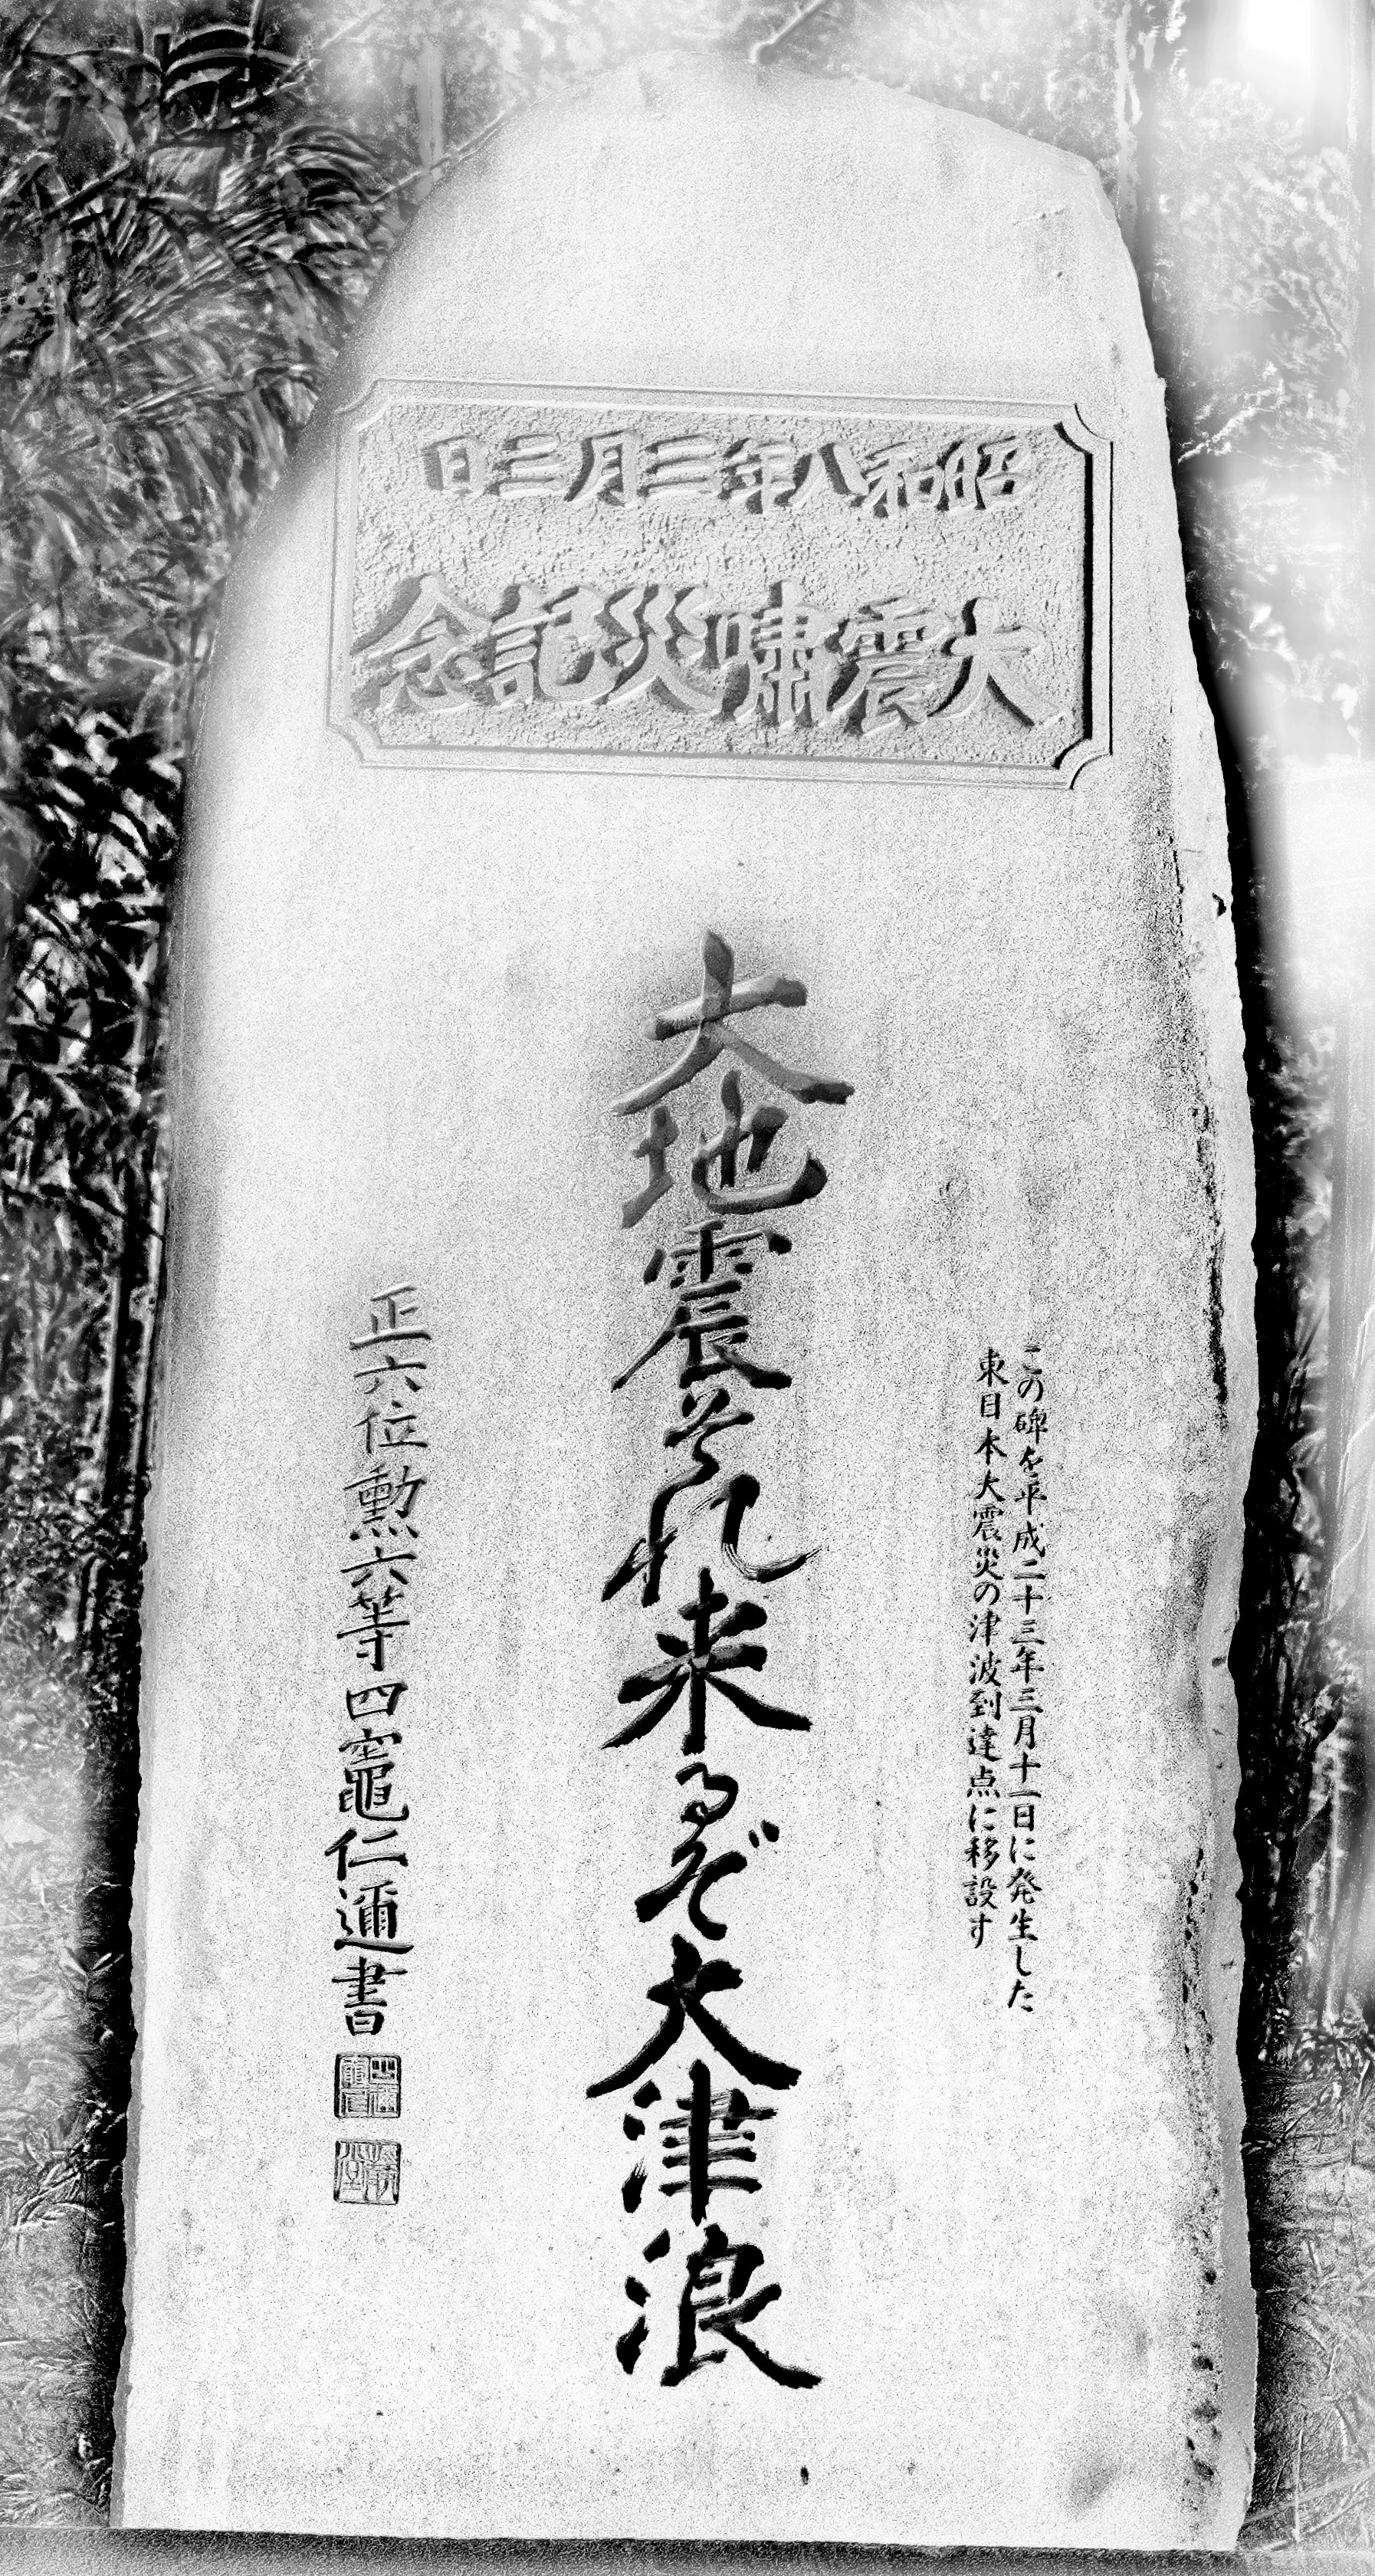 昭和八年三月三日
大震嘯災記念
この碑を平成二十三年三月十一日に発生した
東日本大震災の津波到達点に移設す
大地震それ来るぞ大津浪
正六位勲六等四竈仁邇書